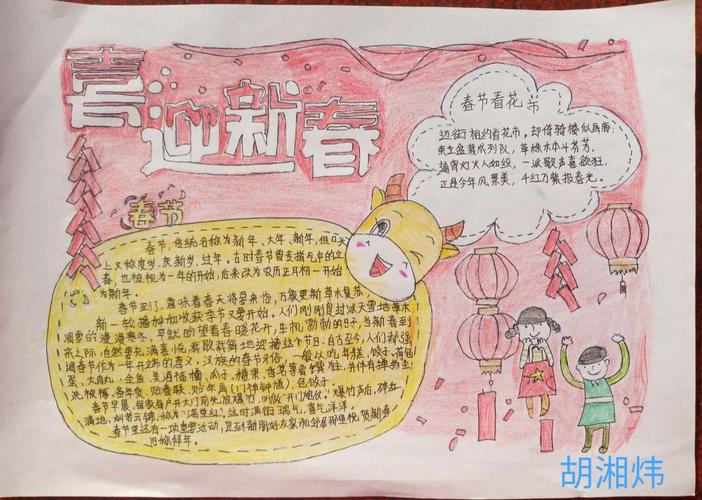 喜迎新春
春节看花市
迈街相约看花市,却倚骑楼似马帝。
束立盆栽成列队,草株木本斗芳芳。
通宵灯火人如织,一派歌声喜欲狂。
正是今年风景美,千红万紫报春光。
春节
春节,传统名称为新年、大年、新年,但口头
上又称度岁、庆新岁、过年。古时春节曾专指节气中的立
春,也被视为一年的开始,后来改为农历正月初一开始
为新年。
春节到了,意味着春天将要来临,万象更新草木复苏,
新一轮播种和收获季节又要开始。人们刚刚度过冰天雪地草木
凋零的漫漫寒冬,早就盼望着春暖花开的日子,当新春到
来之际,自然要充满喜悦载歌载舞地迎接这个节日。自古至今,人们
春节作为一年开始的意义,汉族的春节习俗,一般以吃年糕、饺子、
大肉丸、全鱼、美酒、福橘、苹果、花生、瓜子、糖果
贴春联、贴年画、包饺子
春节早晨,开门大吉,先放爆竹,叫做"开门炮仗"。爆竹声后,碎红
满地,灿若云锦,称为"满堂红",这时满街瑞气,喜气洋洋。
春节里还有一项重要活动,是到新朋好友家和邻居那里祝贺新春,
旧称拜年。
胡湘炜